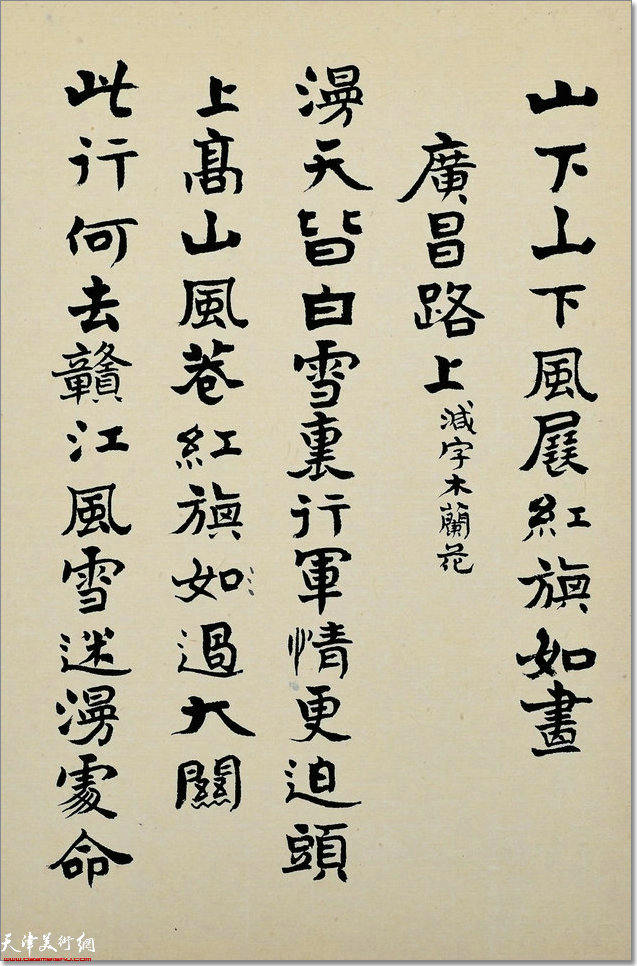 山下山下風展紅旗如畫
廣昌路上 減字木蘭花
漫天皆白雪裏行軍情更迫頭
上髙山風卷紅旗如過大關
此行何去贛江風雪迷漫處命
天津美術網